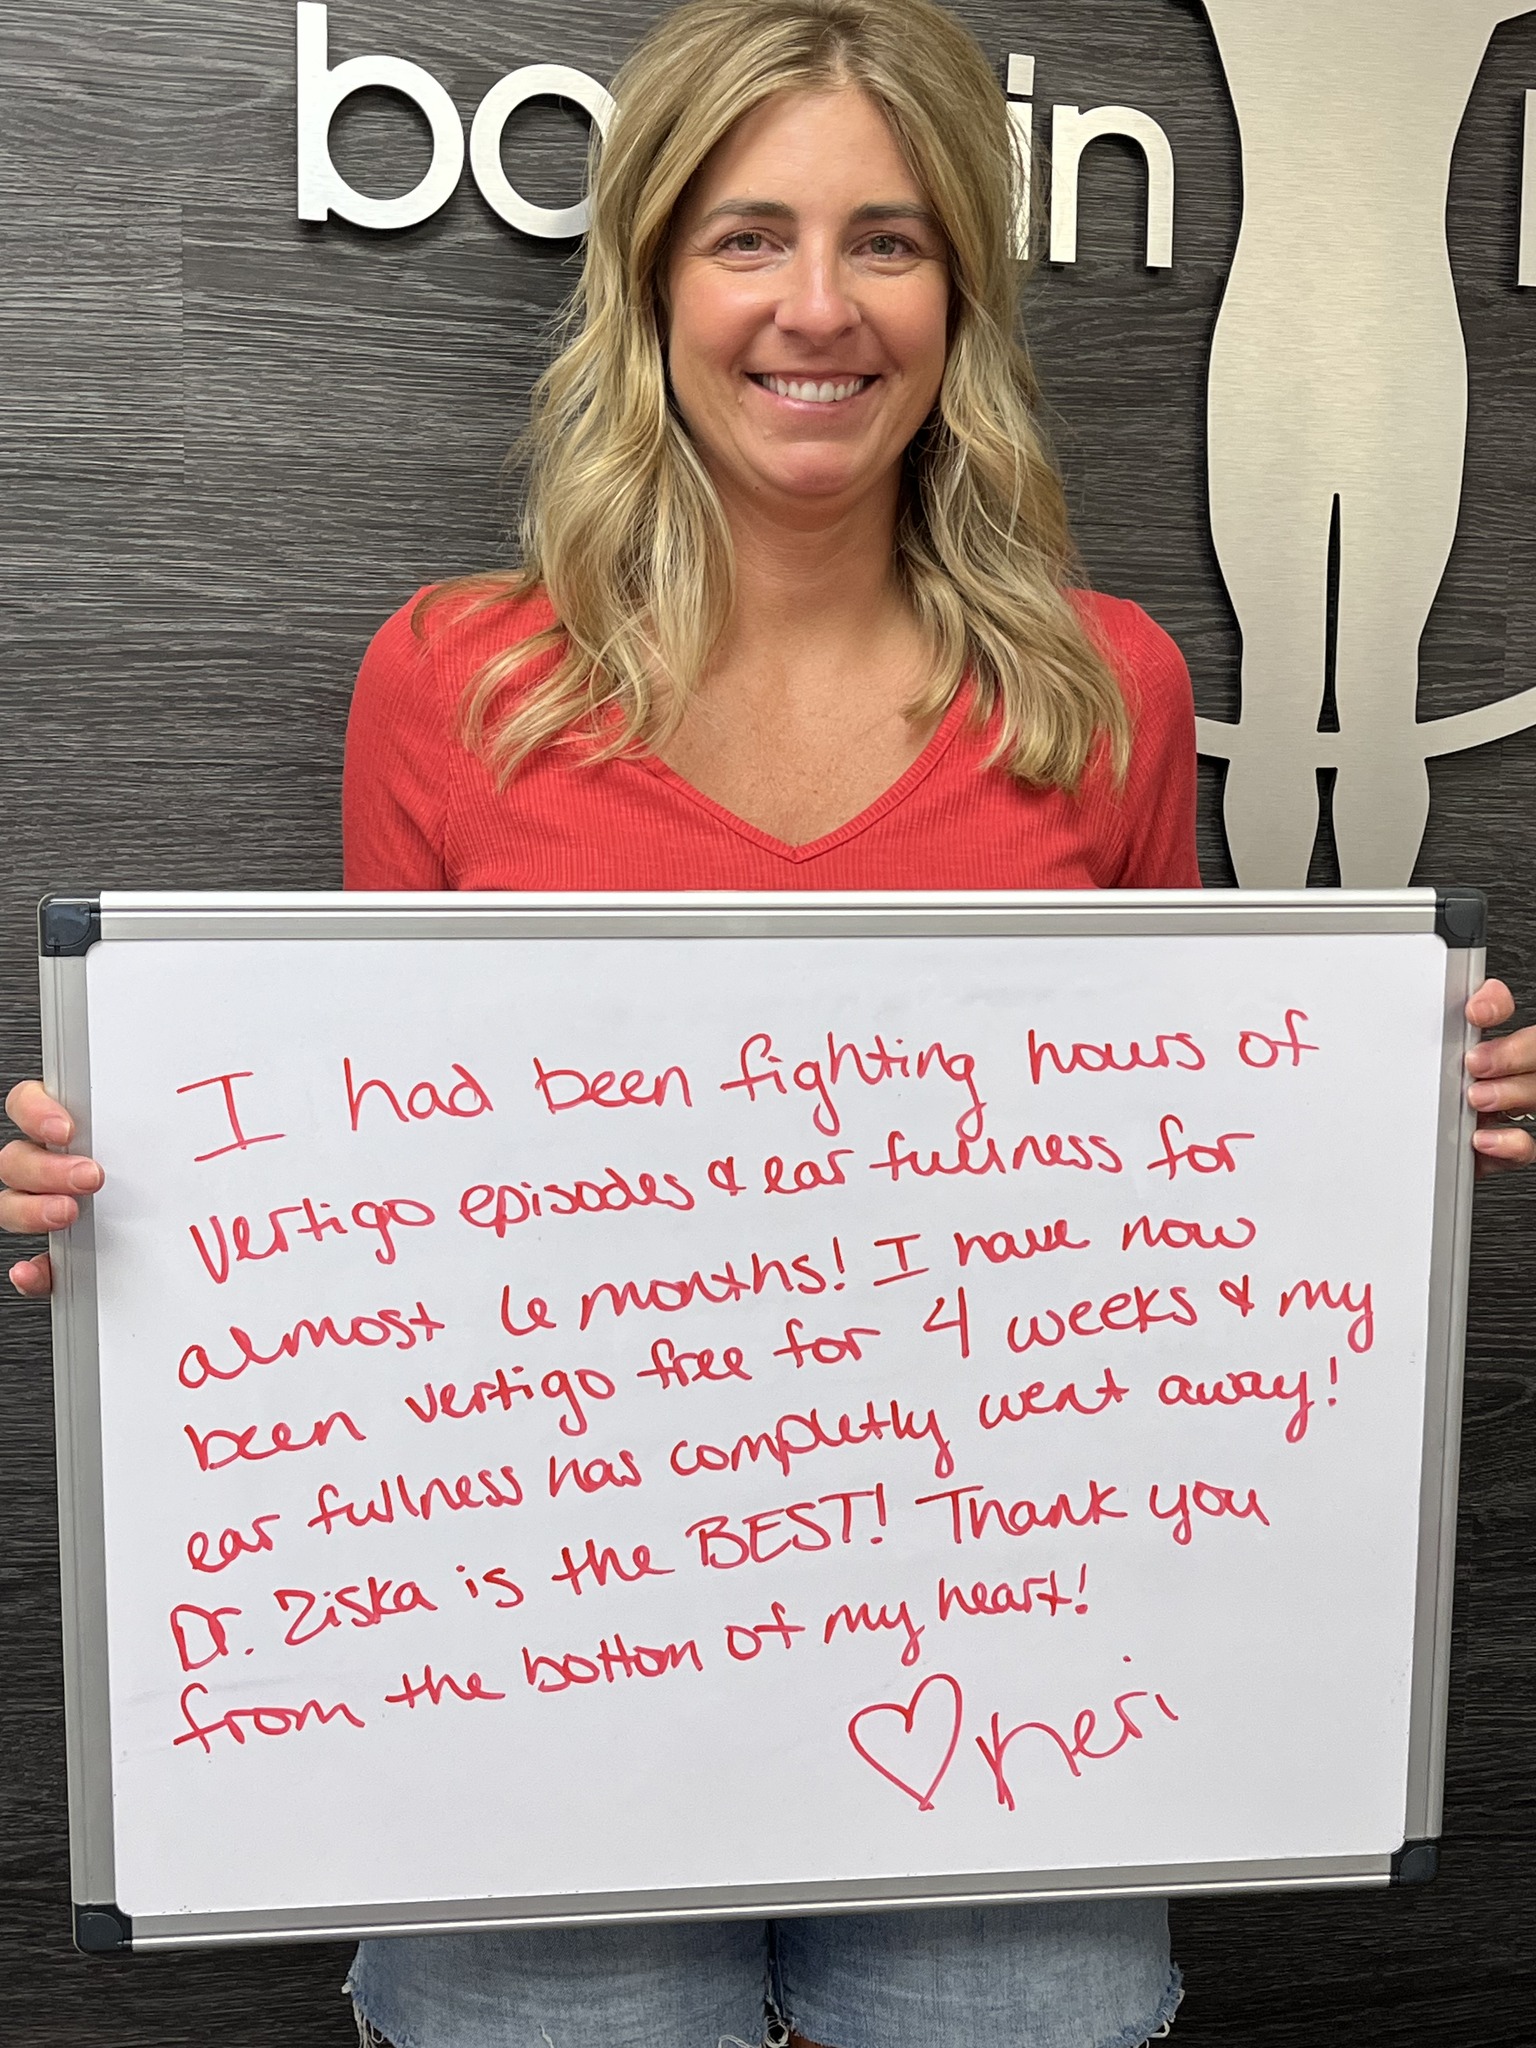 bo in
I had been fighting hours of
vertigo episodes & ear fullness for
almost 6 months! I have now
been vertigo free for 4 weeks & my
ear fullness has completly went away!
Dr. Ziska is the BEST! Thank you
from the bottom of my heart!
♡ Keri